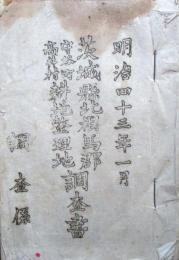 明治四十三年一月
茨城縣北相馬郡
守谷町
高井村
耕地整理地
調査書
調査係